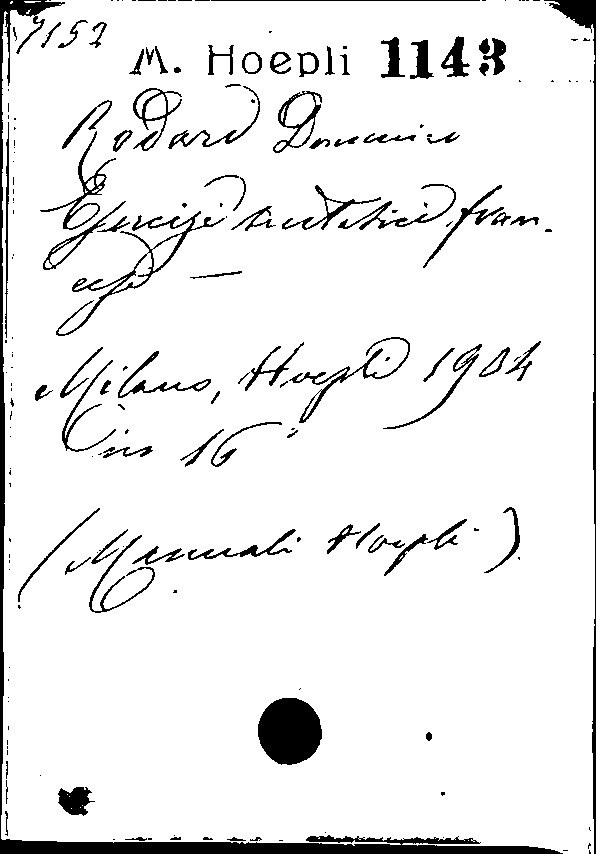 7152
M. Hoepli 1143
Rodari Domenico
Esercizi sintattici fran-
cesi —
Milano, Hoepli 1904
in 16°
(Manuali Hoepli)